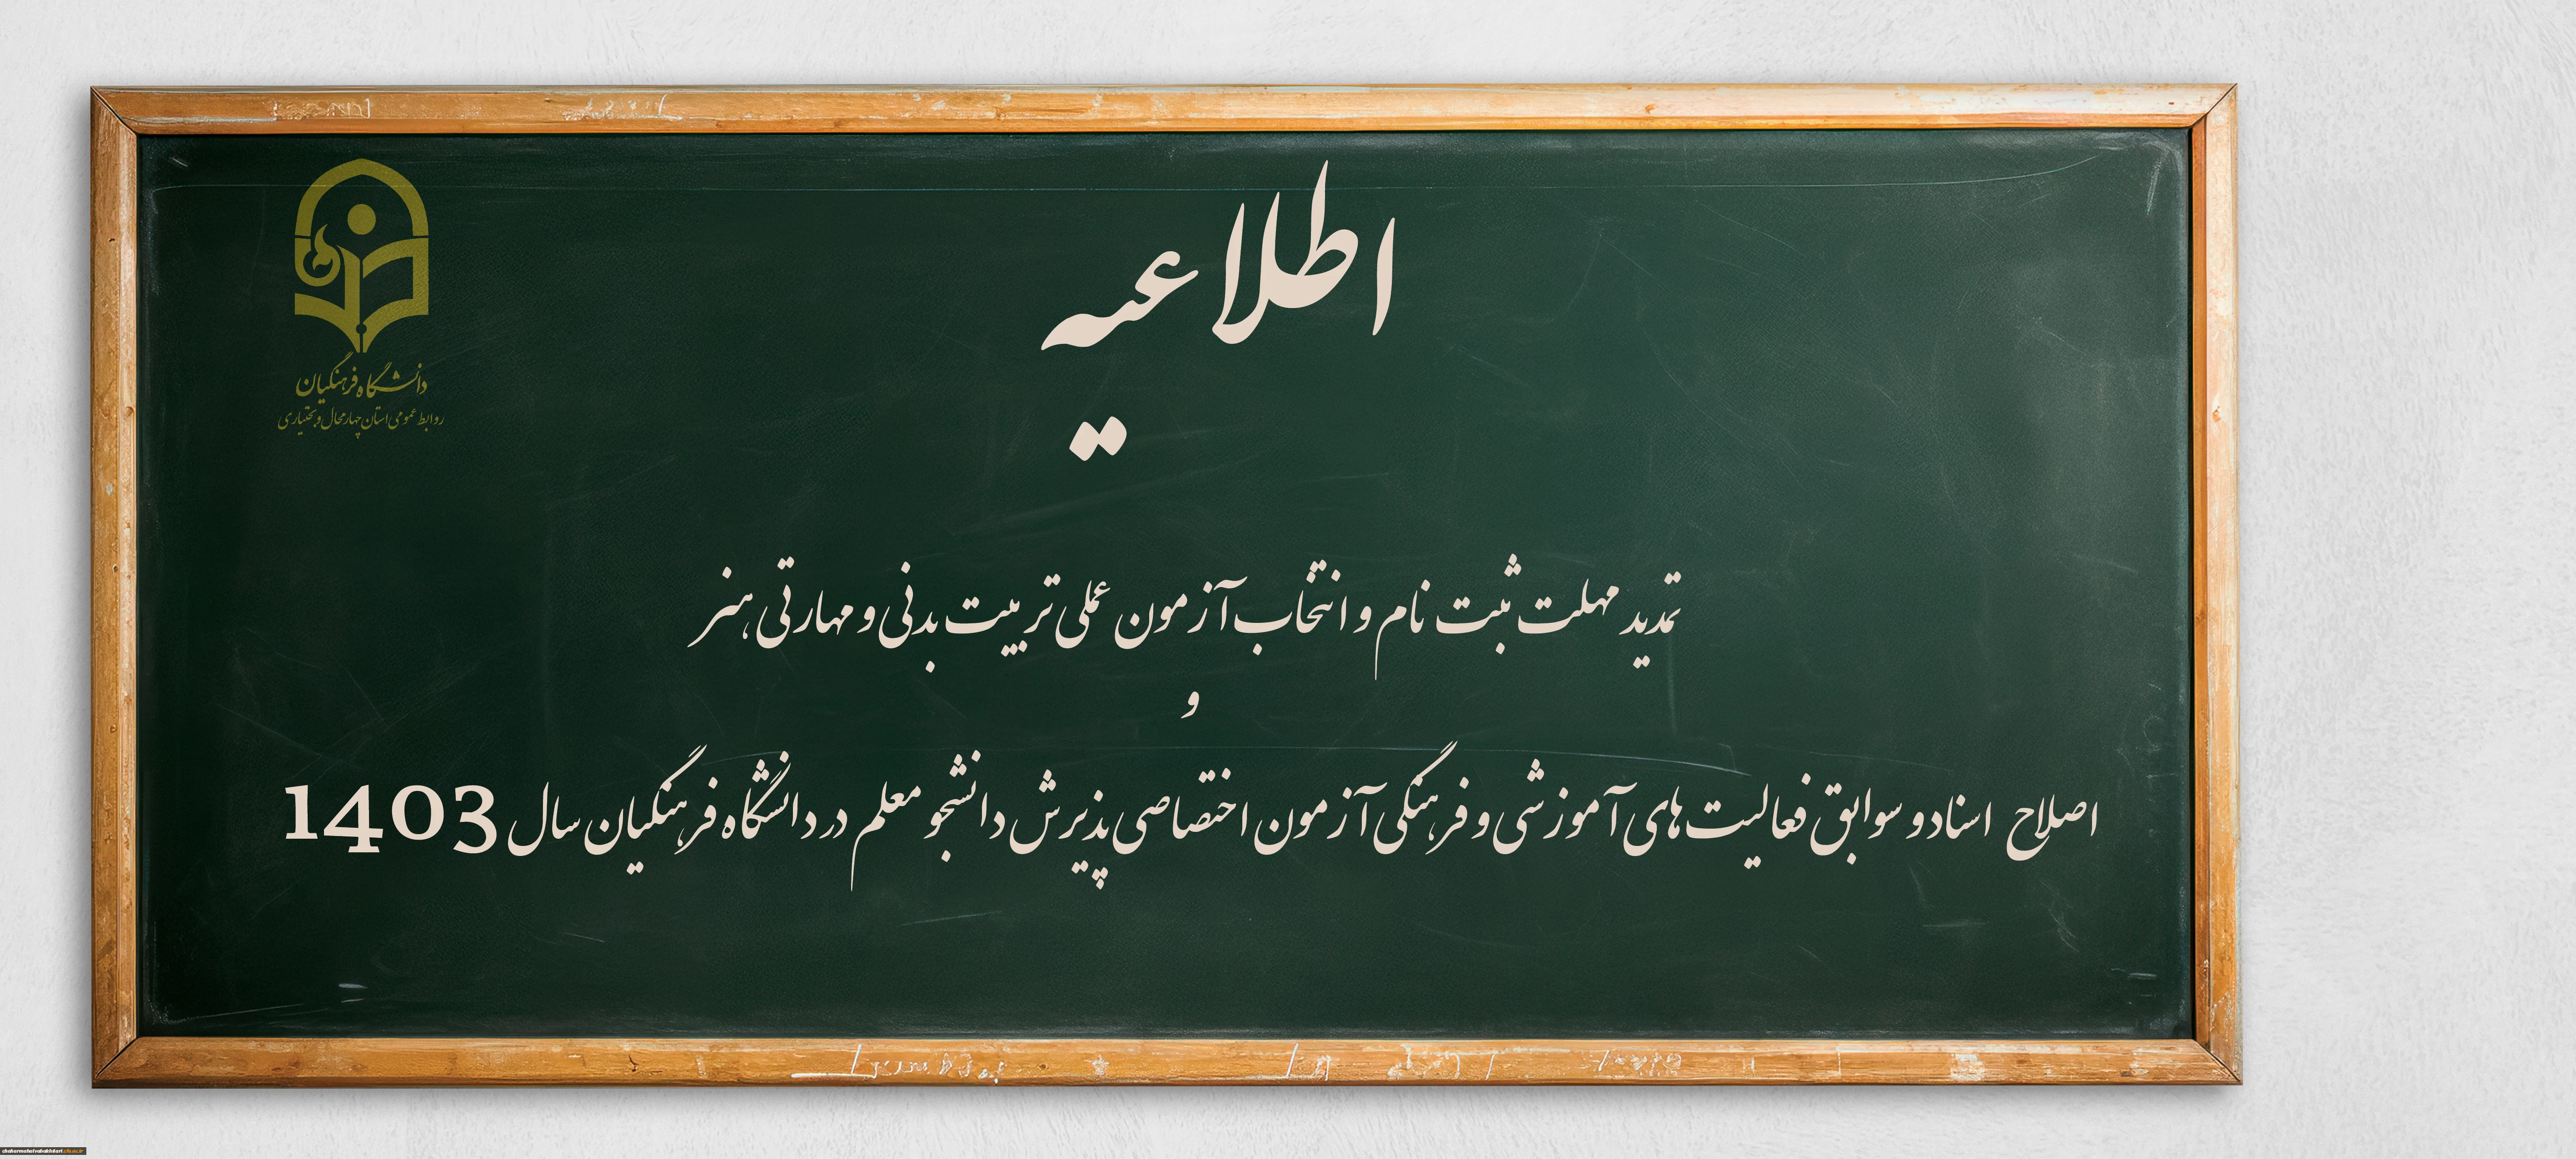 دانشگاه فرهنگیان
روابط عمومی استان چهارمحال و بختیاری
اطلاعیه
تمدید مهلت ثبت نام و انتخاب آزمون عملی تربیت بدنی و مهارتی هنر
و
اصلاح اسناد و سوابق فعالیت های آموزشی و فرهنگی آزمون اختصاصی پذیرش دانشجو معلم در دانشگاه فرهنگیان سال 1403
chaharmahalvabakhtiari.cfu.ac.ir